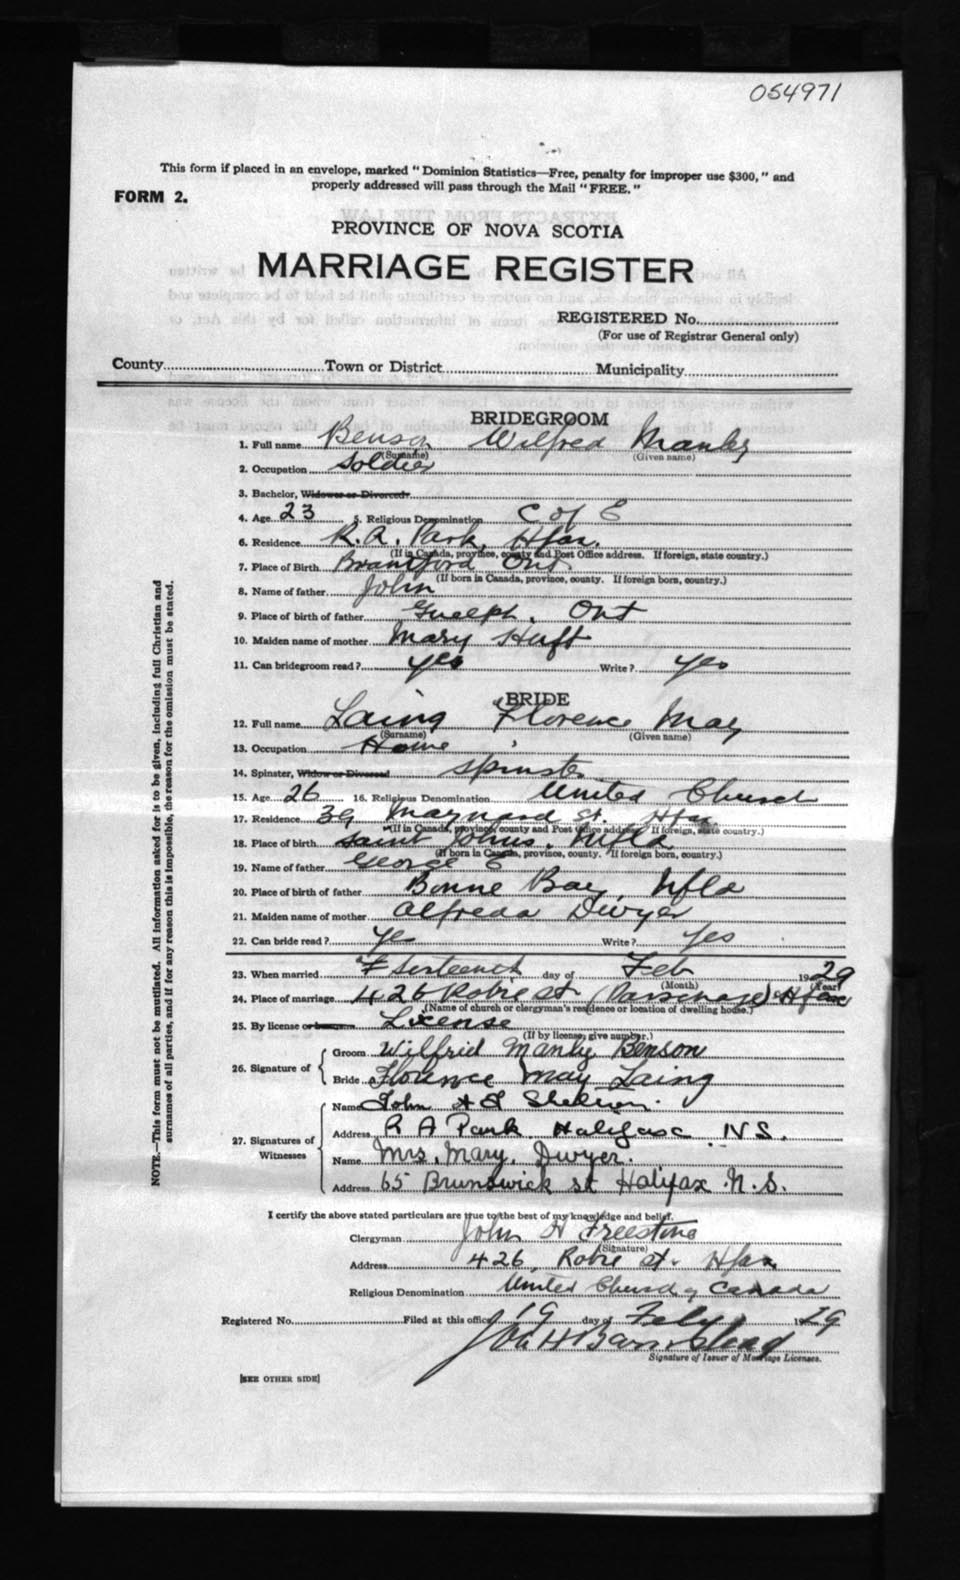 054971
This form if placed in an envelope, marked "Dominion Statistics—Free, penalty for improper use $300," and
properly addressed will pass through the Mail "FREE."
FORM 2.
PROVINCE OF NOVA SCOTIA
MARRIAGE REGISTER
REGISTERED No.
(For use of Registrar General only)
County Town or District Municipality
BRIDEGROOM
1. Full name Benson Wilfred Manly
(Surname) (Given name)
2. Occupation Soldier
3. Bachelor, Widower or Divorced
4. Age 23 5. Religious Denomination C of E
6. Residence R.A. Park, Hfax.
(If in Canada, province, county and Post Office address. If foreign, state country.)
7. Place of Birth Brantford Ont
(If born in Canada, province, county. If foreign born, country.)
8. Name of father John
9. Place of birth of father Guelph, Ont
10. Maiden name of mother Mary Huft
11. Can bridegroom read? yes Write? yes
BRIDE
12. Full name Laing Florence May
(Surname) (Given name)
13. Occupation Home
14. Spinster, Widow or Divorced Spinster
15. Age 26 16. Religious Denomination United Church
17. Residence 39 Maynard St. Hfax
(If in Canada, province, county and Post Office address. If foreign, state country.)
18. Place of birth Saint Johns, Nfld
(If born in Canada, province, county. If foreign born, country.)
19. Name of father George E
20. Place of birth of father Bonne Bay, Nfld
21. Maiden name of mother Alfreda Dwyer
22. Can bride read? Yes Write? Yes
23. When married day of Feb 1929
(Month) (Year)
24. Place of marriage 426 Robie St (Parsonage) Hfax
(Name of church or clergyman's residence or location of dwelling house.)
25. By license or banns License
(If by license, give number.)
26. Signature of
Groom Wilfrid Manly Benson
Bride Florence May Laing
27. Signatures of Witnesses
Name John
Address R A Park Halifax N.S.
Name Mrs. Mary. Dwyer.
Address 65 Brunswick st Halifax N.S.
I certify the above stated particulars are true to the best of my knowledge and belief.
Clergyman John H Freestone
(Signature)
Address 426, Robie St. Hfax
Religious Denomination United Church of Canada
Registered No. Filed at this office 19 day of Feby 1929
Signature of Issuer of Marriage Licenses.
[SEE OTHER SIDE]
NOTE.—This form must not be mutilated. All information asked for is to be given, including full Christian and
surnames of all parties, and if for any reason this is impossible, the reason for the omission must be stated.